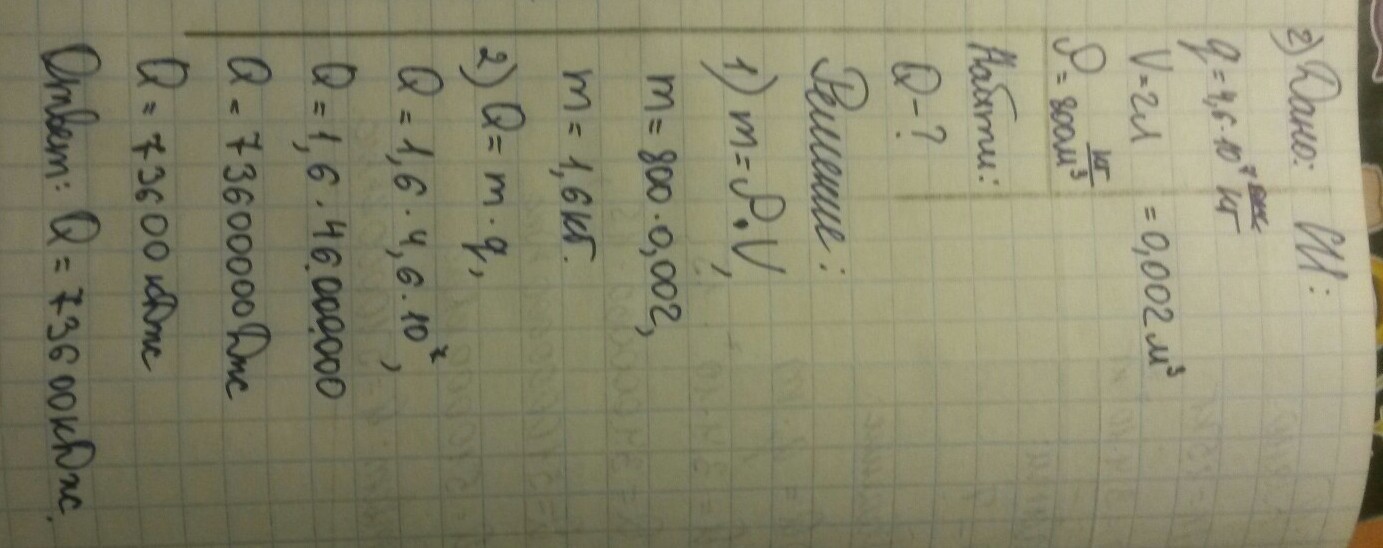 2) Дано: СИ:
q = 4,6 · 10⁷ Дж/кг
V = 2л = 0,002 м³
ρ = 800 кг/м³
Найти:
Q - ?
Решение:
1) m = ρ · V,
m = 800 · 0,002,
m = 1,6 кг.
2) Q = m · q,
Q = 1,6 · 4,6 · 10⁷,
Q = 1,6 · 46000000
Q = 73600000 Дж
Q = 73600 кДж
Ответ: Q = 73600 кДж.